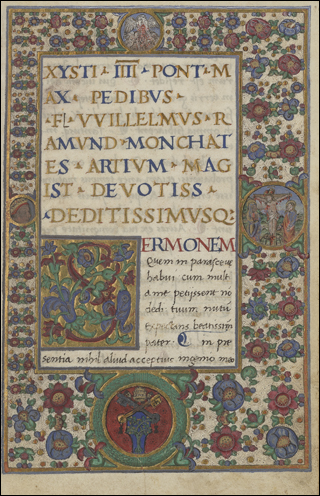 XYSTI · IIII · PONT · M
AX · PEDIBUS ·
· FL · VVILLELMUS · R
AMUND · MONCHAT
ES · ARTIVM · MAG
IST · DEVOTISS ·
· DEDITISSIMUSQ:
SERMONEM
Quem in parasceue
habui cum mult
a me petissent no
dedi tuum nutū
expectans beatissim
pater. Q in pre
sentia nihil aliud acceptius